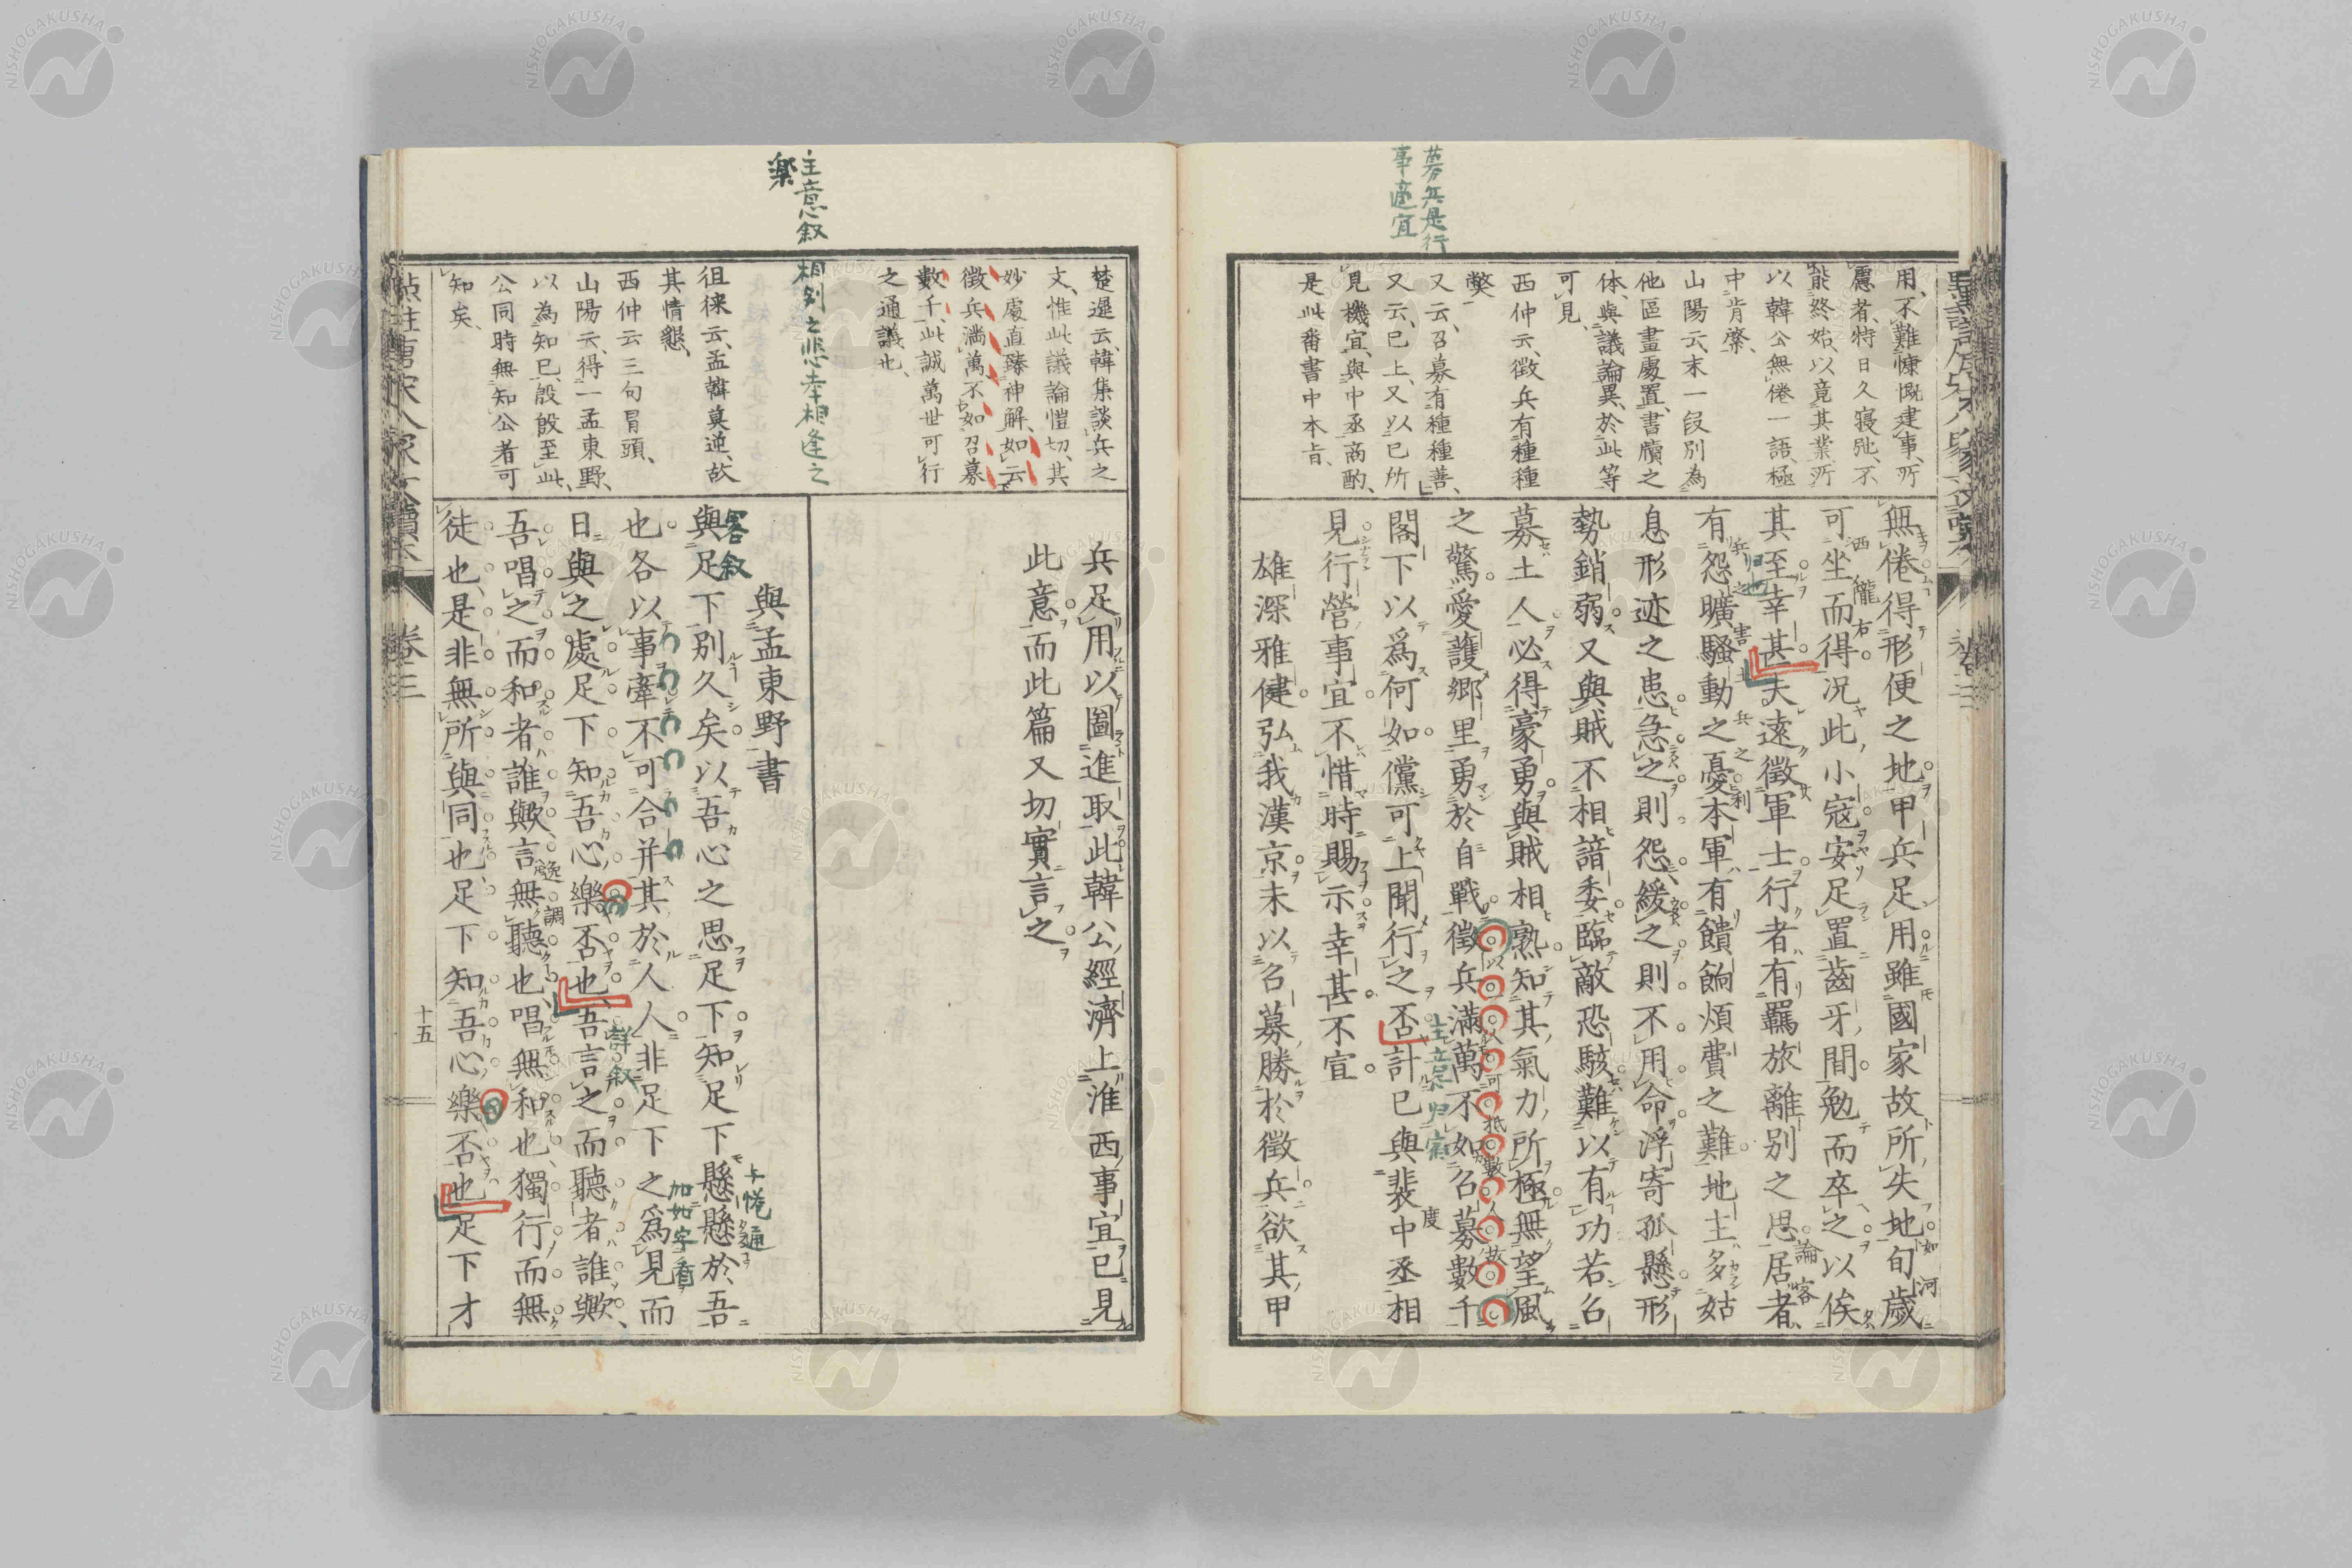 募兵是行
事適宜
用、不難慷慨建事、所
慮者、特日久寢弛、不
能終始、以竟其業、所
以韓公無倦一語、極
中肯綮、
山陽云、末一段別為
他區畫處置、書牘之
体、與議論異、於此等
可見、
西仲云、徵兵有種種
獘
又云、召募有種種善、
又云、已上、又以已所
見機宜、與中丞商酌、
是此番書中本旨、
無倦得形便之地甲兵足用雖國家故所失地旬歲
可坐而得況此小寇安足置齒牙間勉而卒之以俟
其至幸甚夫遠徵軍士行者有羈旅離別之思居者
有怨曠騷動之憂本軍有饋餉煩費之難地主多姑
息形迹之患急之則怨緩之則不用命浮寄孤懸形
勢銷弱又與賊不相諳委臨敵恐駭難以有功若召
募土人必得豪勇與賊相熟知其氣力所極無望風
之驚愛護郷里勇於自戰徵兵滿萬不如召募數千
閣下以爲何如儻可上聞行之否計已與裴中丞相
見行營事宜不惜時賜示幸甚不宣
雄深雅健弘我漢京未以召募勝於徵兵欲其甲
楚遲云、韓集談兵之
文、惟此議論愷切、其
妙處直臻神解、如云
徵兵滿萬、不如召募
數千、此誠萬世可行
之通議也、
主意叙
樂
相別之悲幸相逢之
徂徠云、孟韓莫逆、故
其情懇、
西仲云三句冒頭、
山陽云、得一孟東野、
以為知已、殷殷至此、
公同時無知公者可
知矣、
兵足用以圖進取此韓公經濟上淮西事宜已見
此意而此篇又切實言之
與孟東野書
客叙
與足下別久矣以吾心之思足下知足下懸懸於吾
也各以事牽不可合并其於人人非足下之爲見而
日與之處足下知吾心樂否也吾言之而聽者誰歟
吾唱之而和者誰歟言無聽也唱無和也獨行而無
徒也是非無所與同也足下知吾心樂否也足下才
詳叙
加如字看
卷三
十五